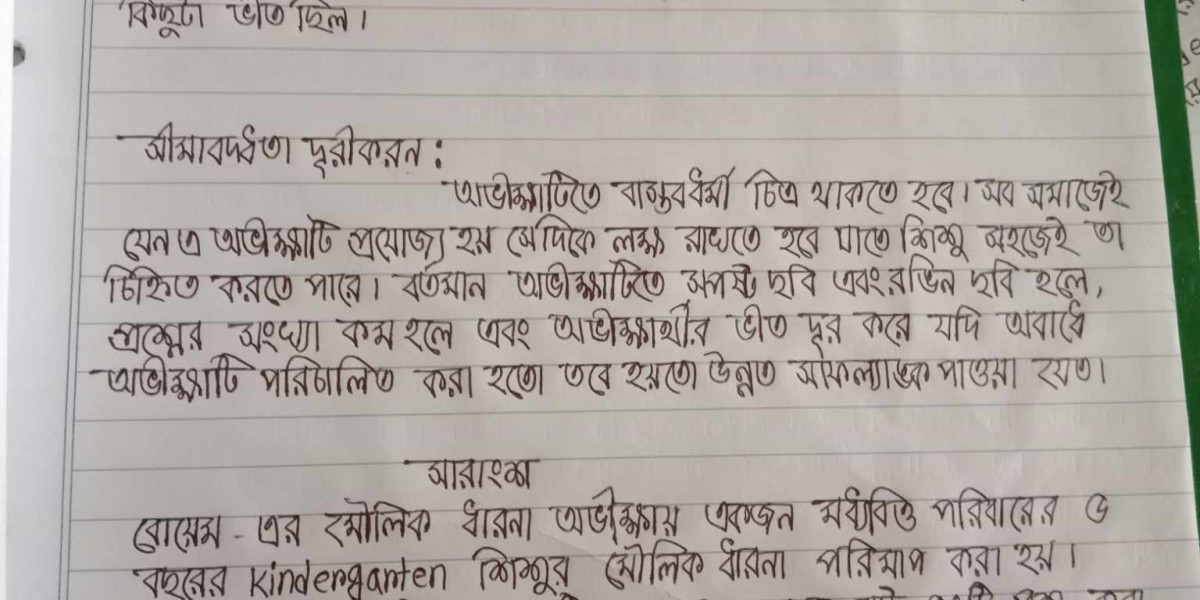 কিছুটা ভীত ছিল।
সীমাবদ্ধতা দূরীকরন :
অভীক্ষাটিতে বাস্তবধর্মী চিত্র থাকতে হবে। সব সমাজেই
যেন এ অভীক্ষাটি প্রযোজ্য হয় সেদিকে লক্ষ রাখতে হবে যাতে শিশু সহজেই তা
চিহ্নিত করতে পারে। বর্তমান অভীক্ষাটিতে স্পষ্ট ছবি এবং রঙিন ছবি হলে,
প্রশ্নের সংখ্যা কম হলে এবং অভীক্ষার্থীর ভীত দূর করে যদি অবাধে
অভীক্ষাটি পরিচালিত করা হতো তবে হয়তো উন্নত সাফল্যাঙ্ক পাওয়া যেত।
সারাংশ
বোয়েম - এর মৌলিক ধারনা অভীক্ষায় একজন মধ্যবিত্ত পরিবারের ৬
বছরের kindergarten শিশুর মৌলিক ধারনা পরিমাপ করা হয়।